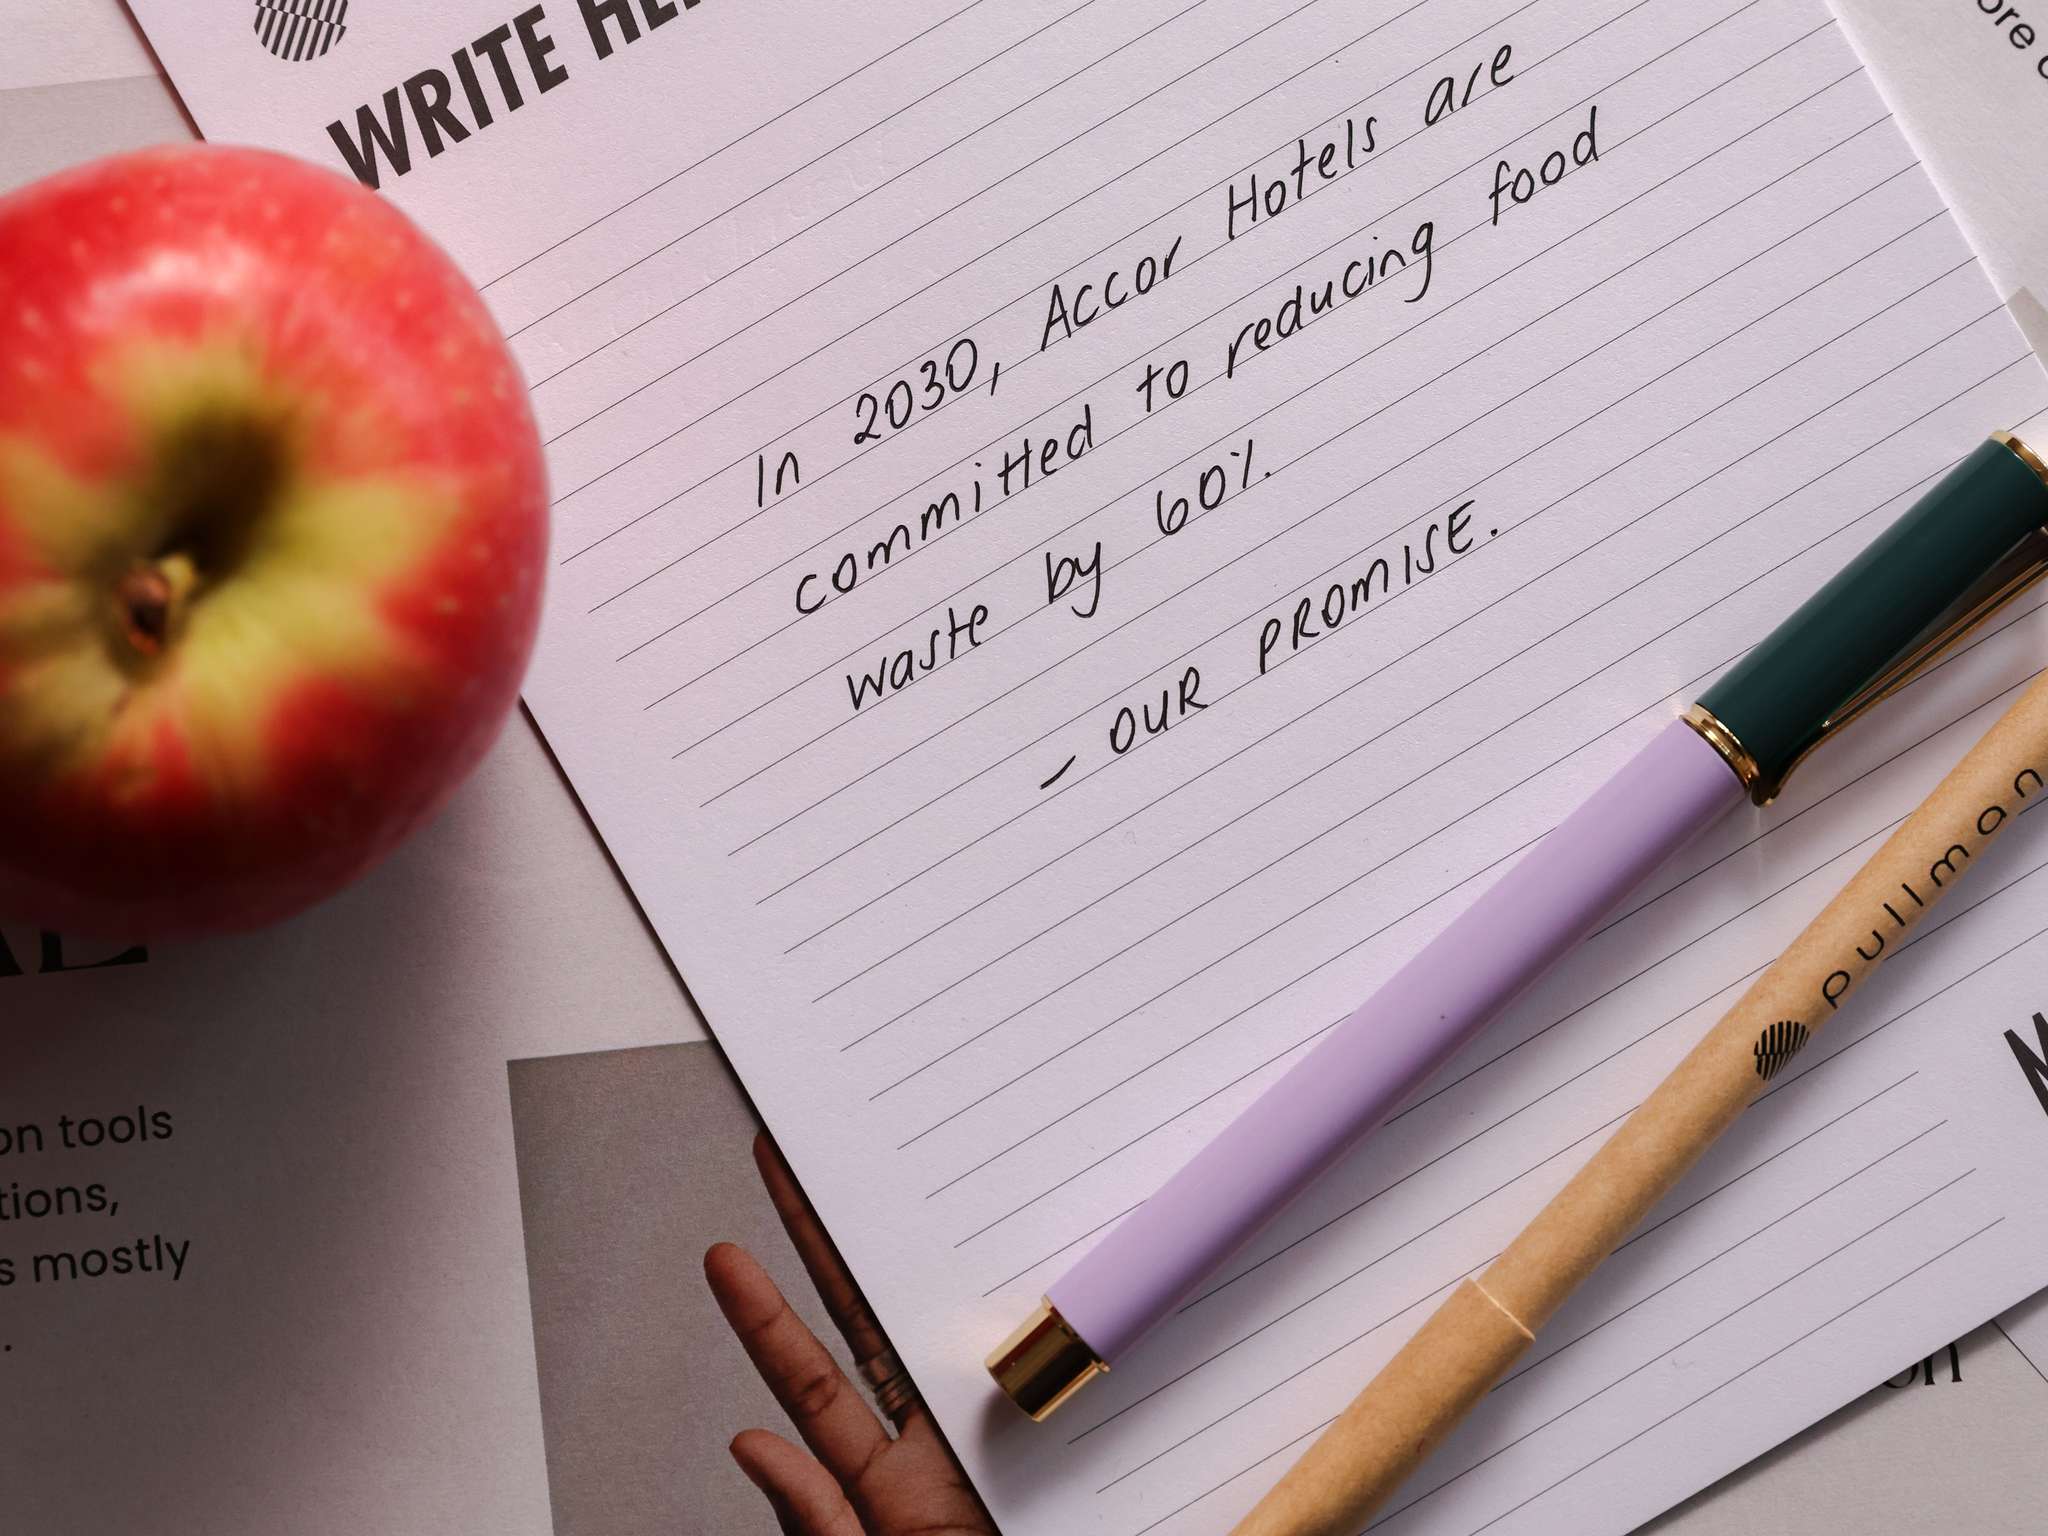 WRITE
In 2030, Accor Hotels are
committed to reducing food
waste by 60%.
- OUR PROMISE.
pullman
on tools
tions,
s mostly
.
ore
on